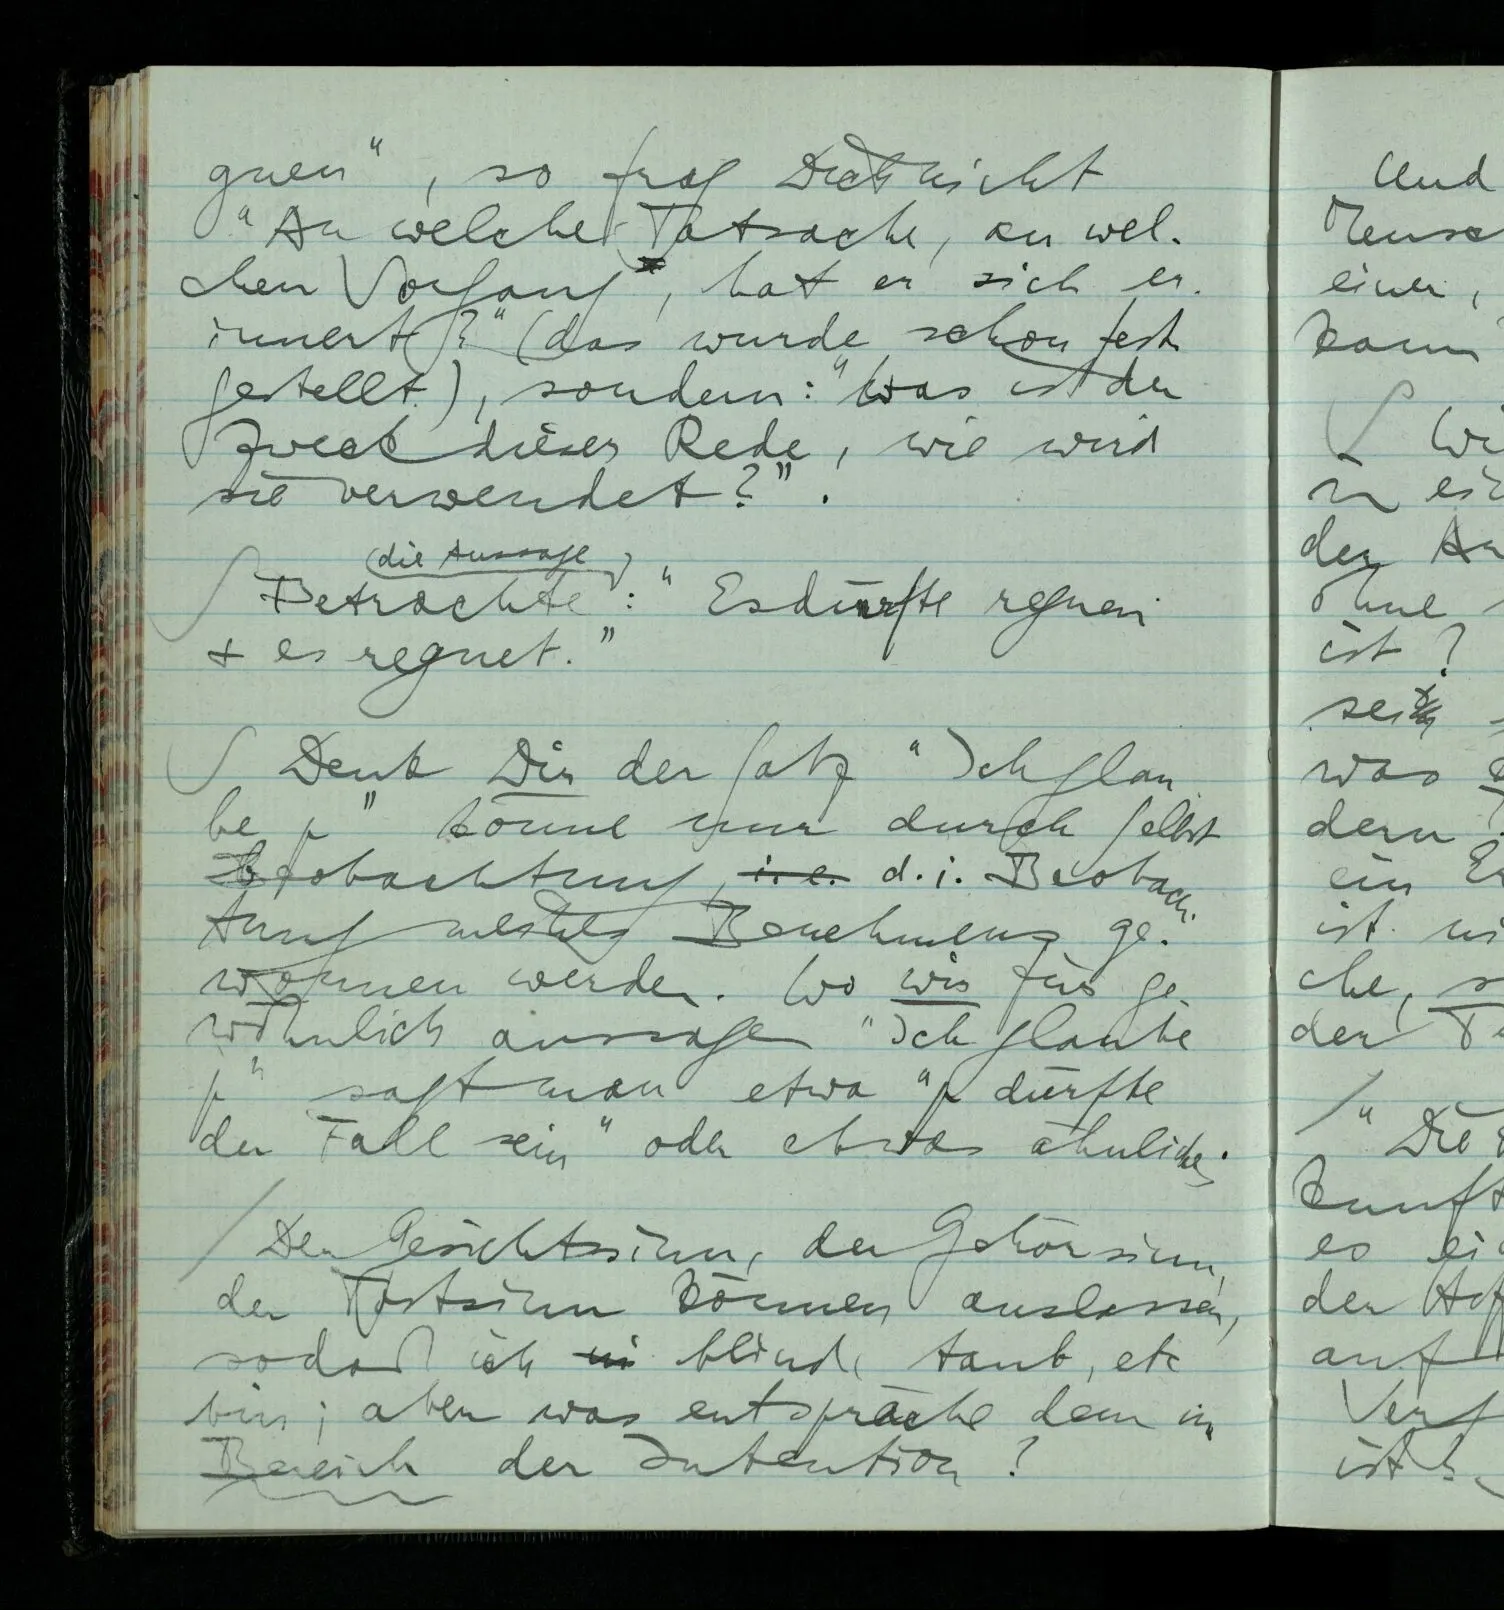 gnen", so frag Dich nicht
"An welche Tatsache, an wel-
chen Vorgang, hat er sich er-
innert?" (das wurde schon fest-
gestellt), sondern: "Was ist der
Zweck dieser Rede, wie wird
sie verwendet?".
(die Aussage)
∫ Betrachte: "Es dürfte regnen
+ es regnet."
∫ Denk Dir der Satz "Ich glau-
be p" könne nur durch Selbst
beobachtung, i.e. d.i. Beobach-
tung meines Benehmens ge-
wonnen werden. Wo wir für ge-
wöhnlich aussagen "Ich glaube
p" sagt man etwa "p dürfte
der Fall sein" oder etwas ähnliches.
/ Der Gesichtssinn, der Gehörsinn,
der Tastsinn können auslassen,
sodaß ich blind, taub, etc
bin; aber was entspräche dem im
Bereich der Intention?
Und
Mensc
einer,
kann
∫ Wi
der An
ohne
ist?
was
dern
ein
ist
che,
der
/ "Die
kunft
es
der
auf
ist?